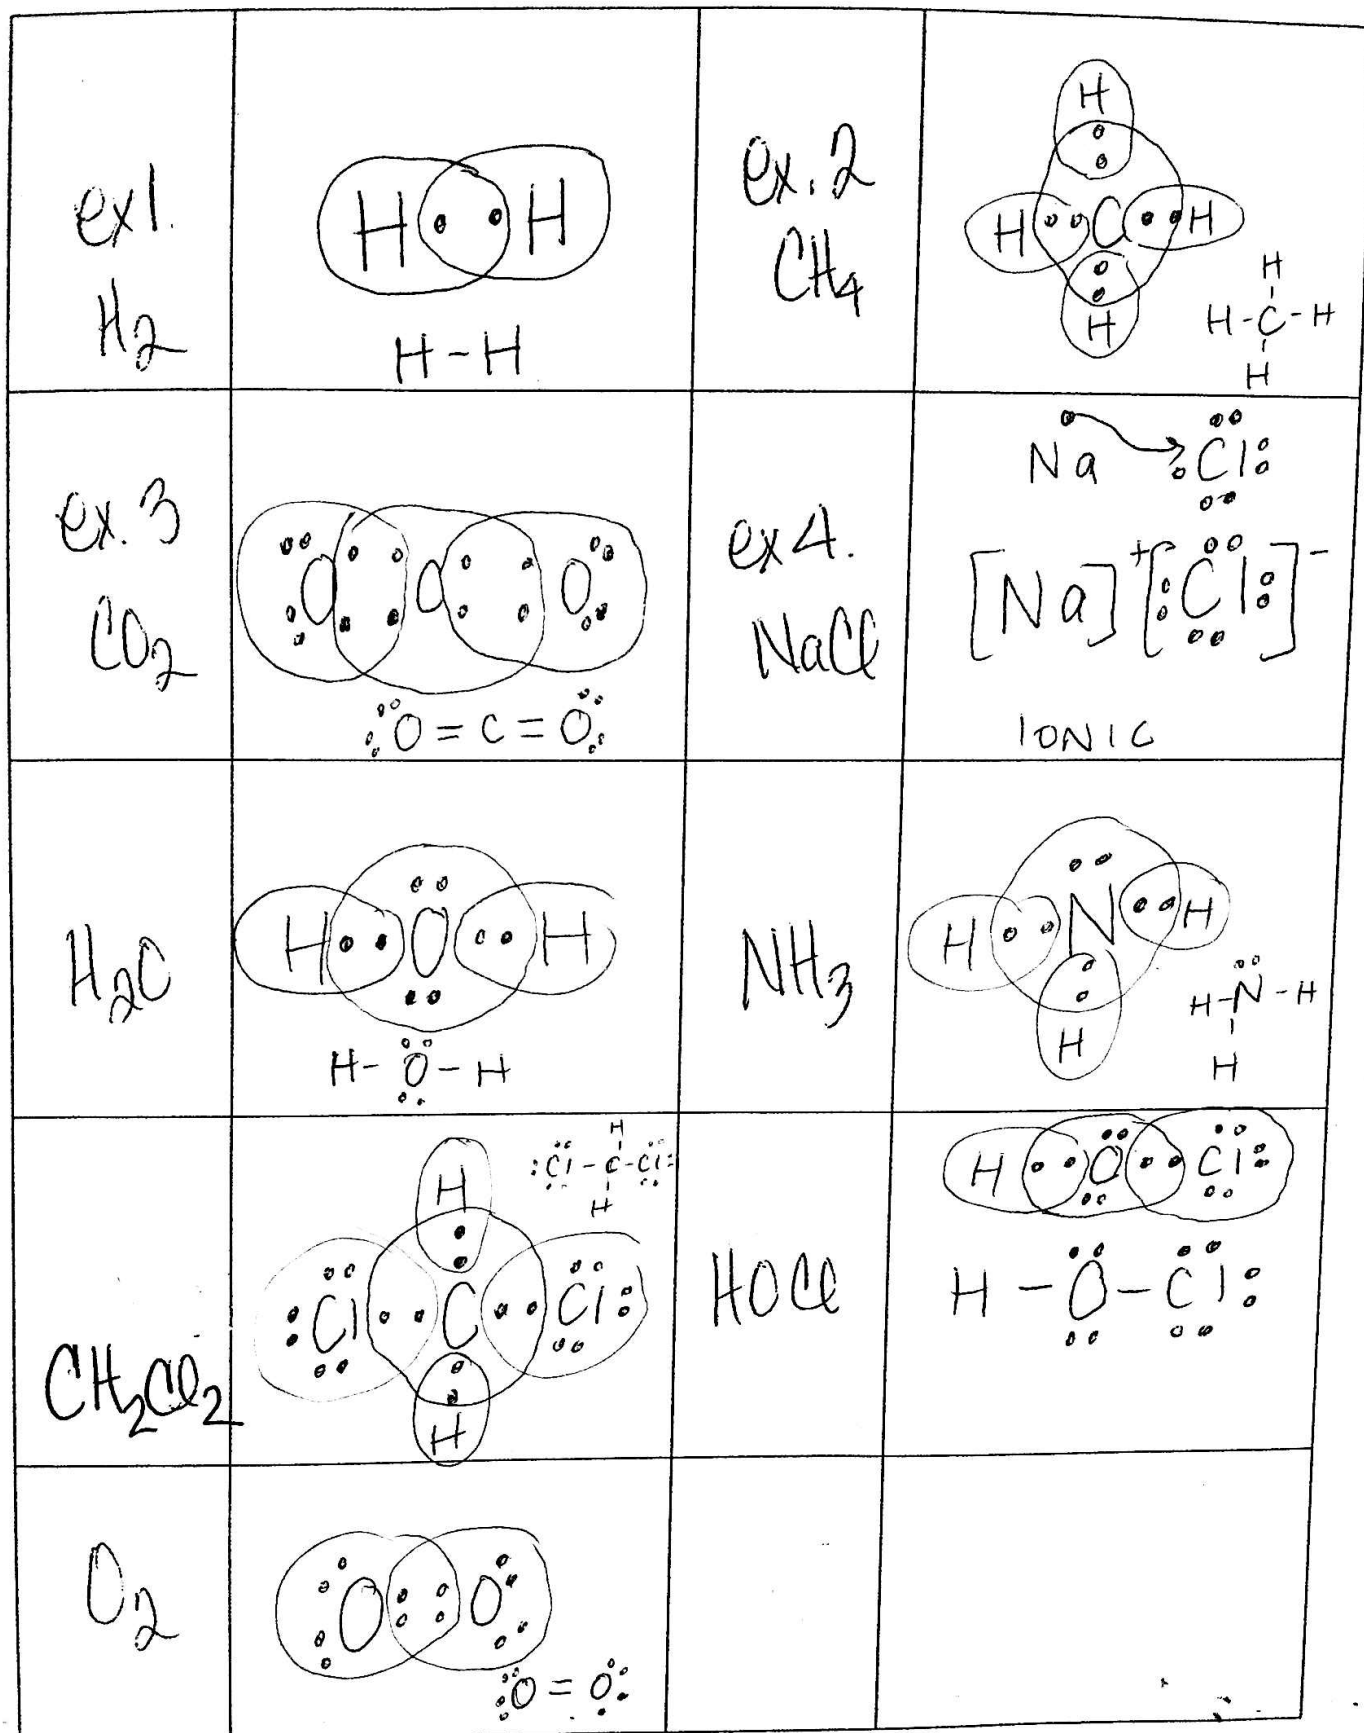 ex1.
H2
H H
H-H
ex.2
CH4
H
H C H
H
H
H-C-H
H
ex.3
CO2
O C O
O = C = O
ex4.
NaCl
Na Cl
[Na]+ [Cl]-
IONIC
H2O
H O H
H-O-H
NH3
H N H
H
H-N-H
H
CH2Cl2
H
Cl-C-Cl
H
H
Cl C Cl
H
HOCl
H O Cl
H-O-Cl
O2
O O
O = O